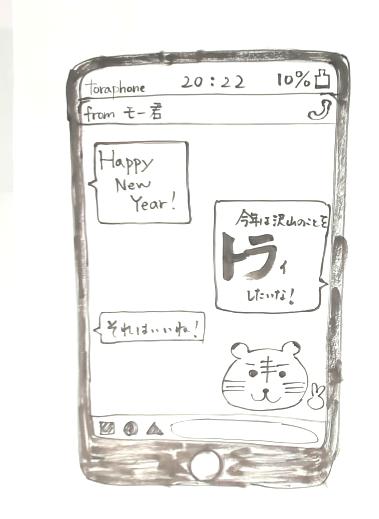 toraphone 20:22 10%
from モー君
Happy
New
Year!
今年は沢山のことを
トライ
したいな!
それはいいね!